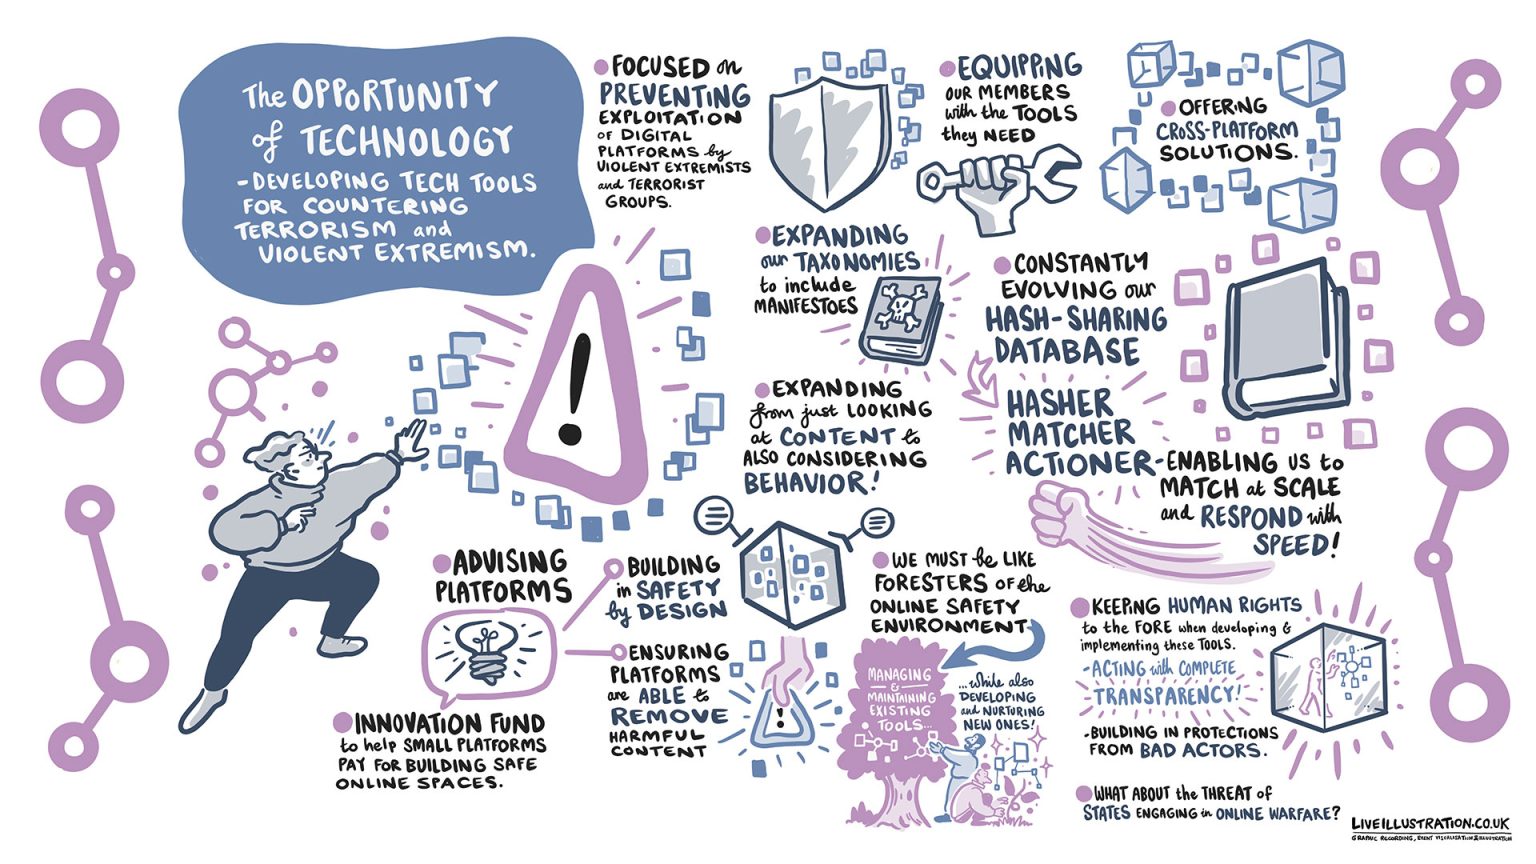 The OPPORTUNITY
of TECHNOLOGY
-DEVELOPING TECH TOOLS
FOR COUNTERING
TERRORISM and
VIOLENT EXTREMISM.
FOCUSED on
PREVENTING
EXPLOITATION
of DIGITAL
PLATFORMS by
VIOLENT EXTREMISTS
and TERRORIST
GROUPS.
EQUIPPING
OUR MEMBERS
with the TOOLS
they NEED
OFFERING
CROSS-PLATFORM
SOLUTIONS.
EXPANDING
our TAXONOMIES
to include
MANIFESTOES
CONSTANTLY
EVOLVING our
HASH-SHARING
DATABASE
HASHER
MATCHER
ACTIONER-ENABLING US to
MATCH at SCALE
and RESPOND with
SPEED!
EXPANDING
from just LOOKING
at CONTENT to
ALSO CONSIDERING
BEHAVIOR!
!
ADVISING
PLATFORMS
BUILDING
in SAFETY
by DESIGN
ENSURING
PLATFORMS
are ABLE to
REMOVE
HARMFUL
CONTENT
!
INNOVATION FUND
to help SMALL PLATFORMS
PAY FOR BUILDING SAFE
ONLINE SPACES.
WE MUST be LIKE
FORESTERS OF the
ONLINE SAFETY
ENVIRONMENT
MANAGING
&
MAINTAINING
EXISTING
TOOLS...
...while also
DEVELOPING
and NURTURING
NEW ONES!
KEEPING HUMAN RIGHTS
to the FORE when developing &
implementing these TOOLS.
-ACTING with COMPLETE
TRANSPARENCY!
-BUILDING IN PROTECTIONS
FROM BAD ACTORS.
WHAT ABOUT the THREAT of
STATES ENGAGING in ONLINE WARFARE?
LIVEILLUSTRATION.CO.UK
GRAPHIC RECORDING, EVENT VISUALISATION & ILLUSTRATION